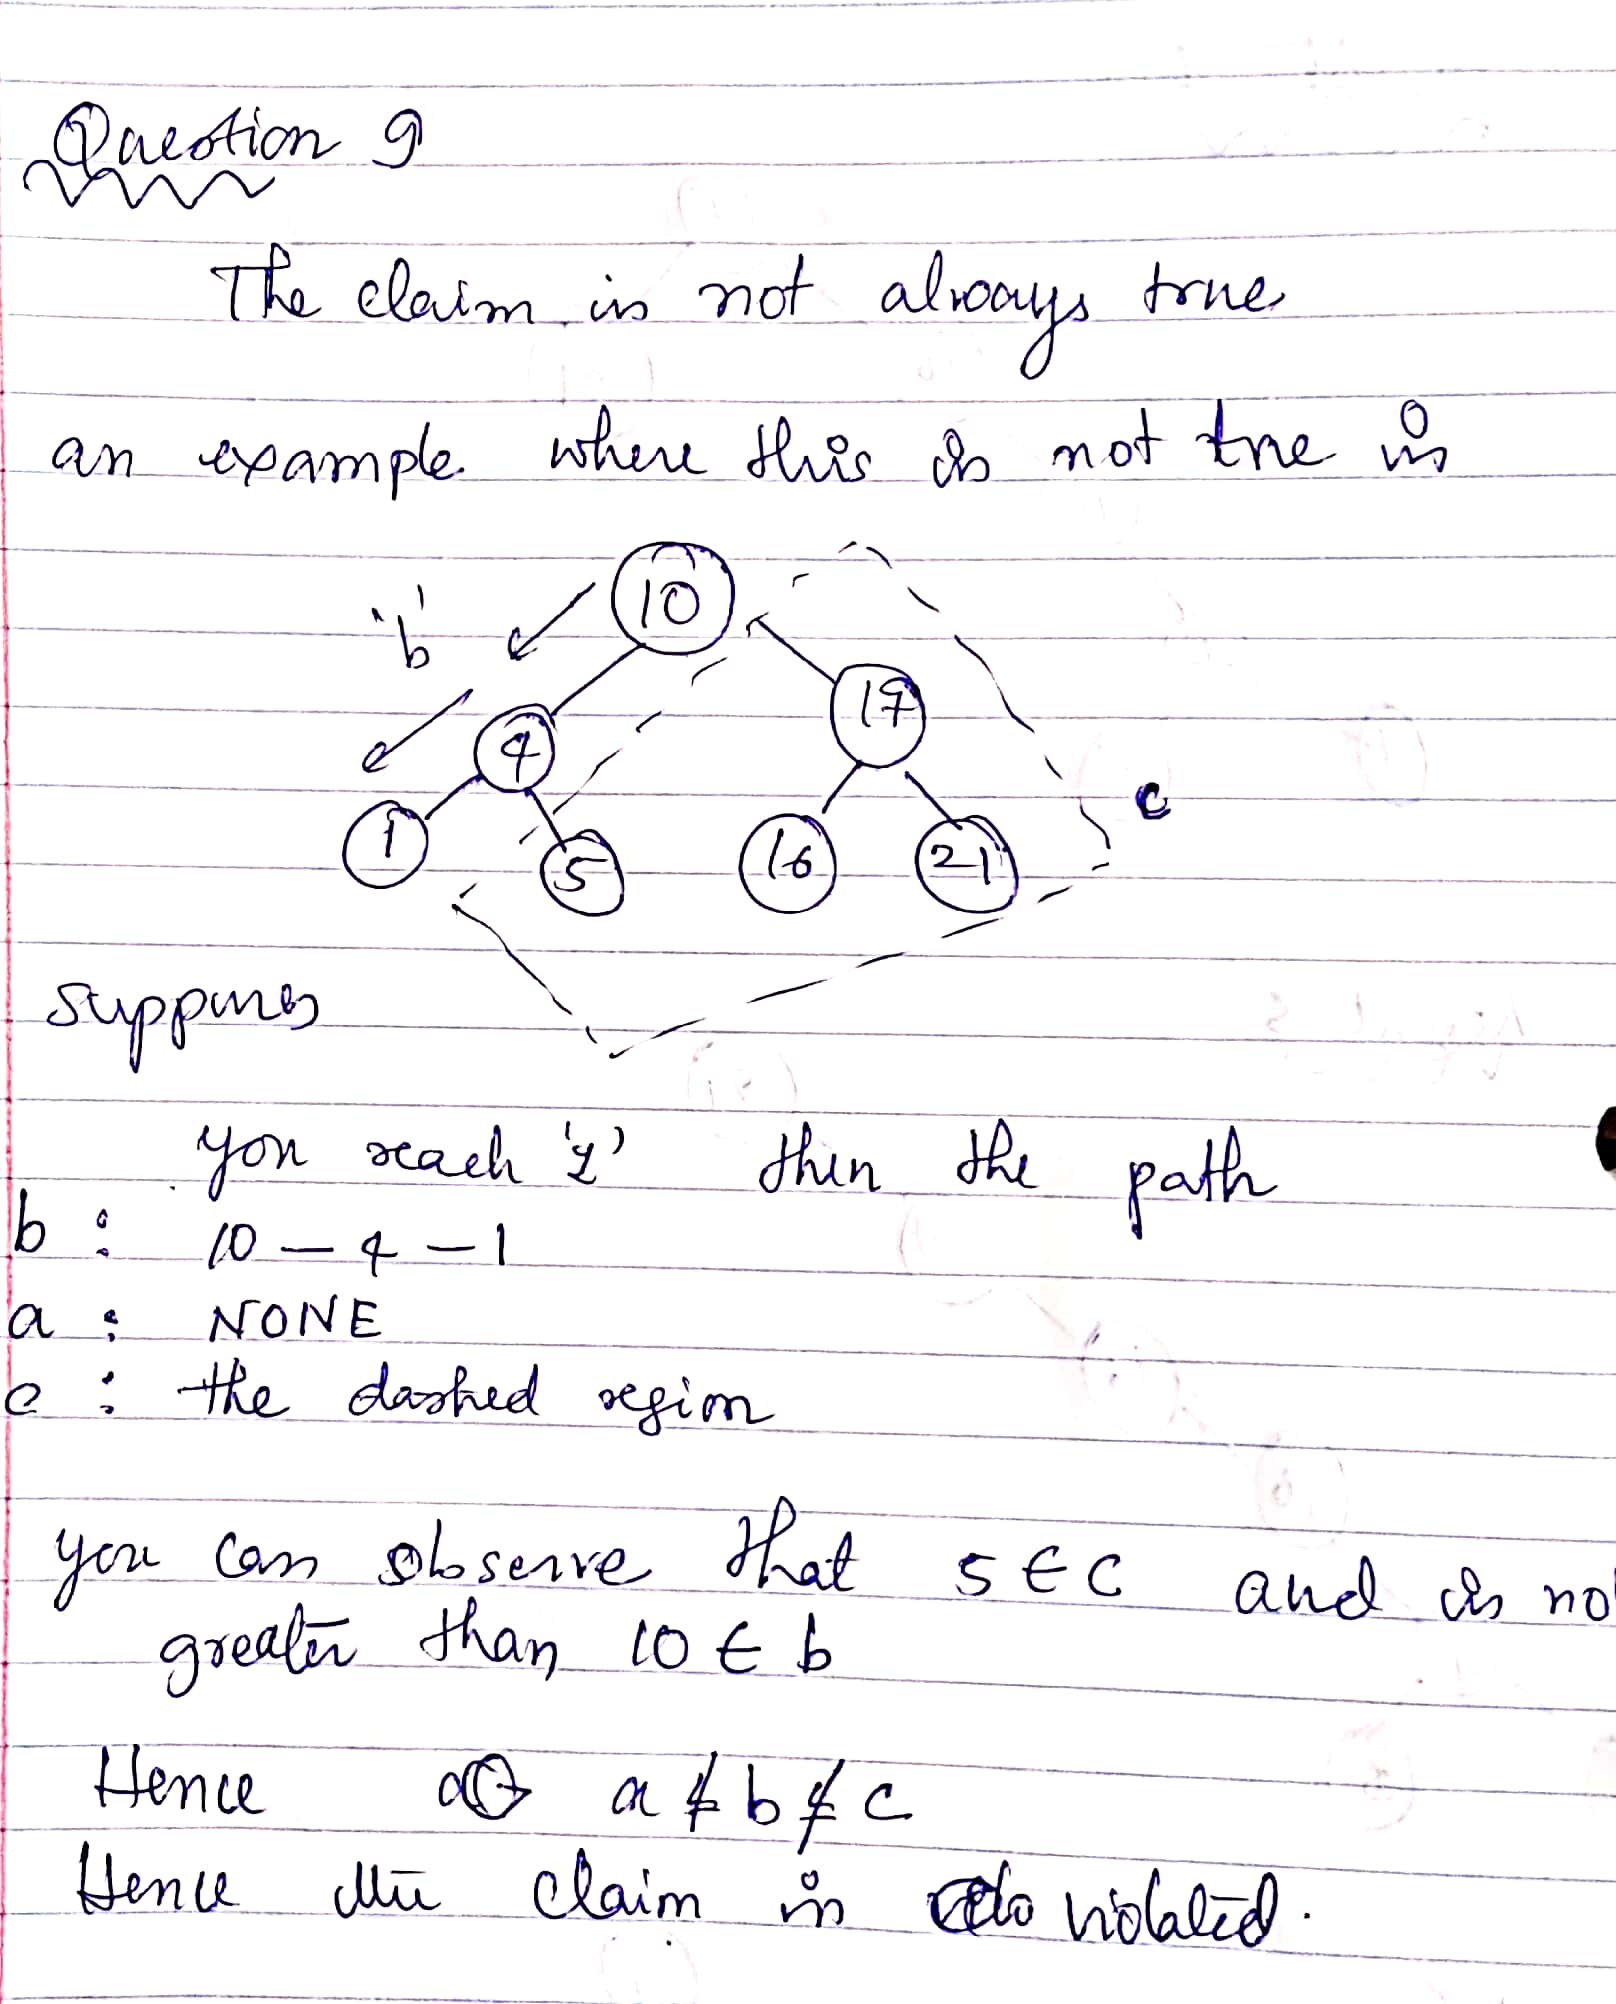 Question 9
The claim is not always true
an example where this is not true is
10
'b'
17
4
c
1
5
16
21
suppose
you reach '1' then the path
b : 10 - 4 - 1
a : NONE
c : the dashed region
you can observe that 5 ∈ c and is no
greater than 10 ∈ b
Hence a ≰ b ≰ c
Hence the claim is violated.